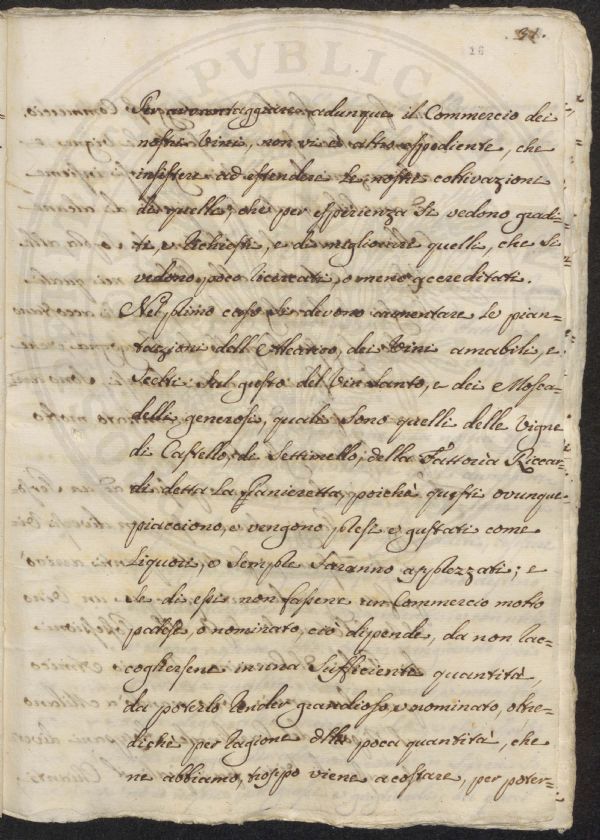 .31.
16
Per avvantaggiare adunque il Commercio dei
nostri Vini, non vi è altro espediente, che
insistere ad estendere le nostre coltivazioni
di quelle, che per esperienza si vedono gradi-
te, e richieste, e di migliorare quelli, che si
vedono poco ricercati, o meno accreditati.
Nel primo caso si devono aumentare le pian-
tazioni dell'Aleatico, dei Vini amabili, e
Scelti sul gusto del Vin Santo, e dei Mosca-
delli generosi, quali sono quelli delle Vigne
di Castello, di Settimello, della Fattoria Riccar-
di detta la Panieretta, poichè questi ovunque
piacciono, e vengono presi e gustati come
Liquori, e sempre saranno apprezzati; e
se di essi non fassene un Commercio molto
palese, o nominato, ciò dipende, da non rac-
cogliersene in una sufficiente quantità,
da poterlo render grandioso, e nominato, oltre-
dichè per ragione della poca quantità, che
ne abbiamo, troppo viene a costare, per poter-
PVBLIC